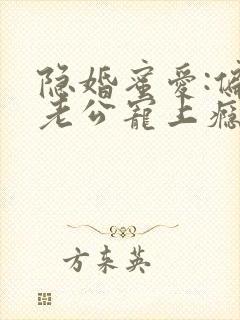 隐婚蜜爱:偏
老公宠上瘾
方东英